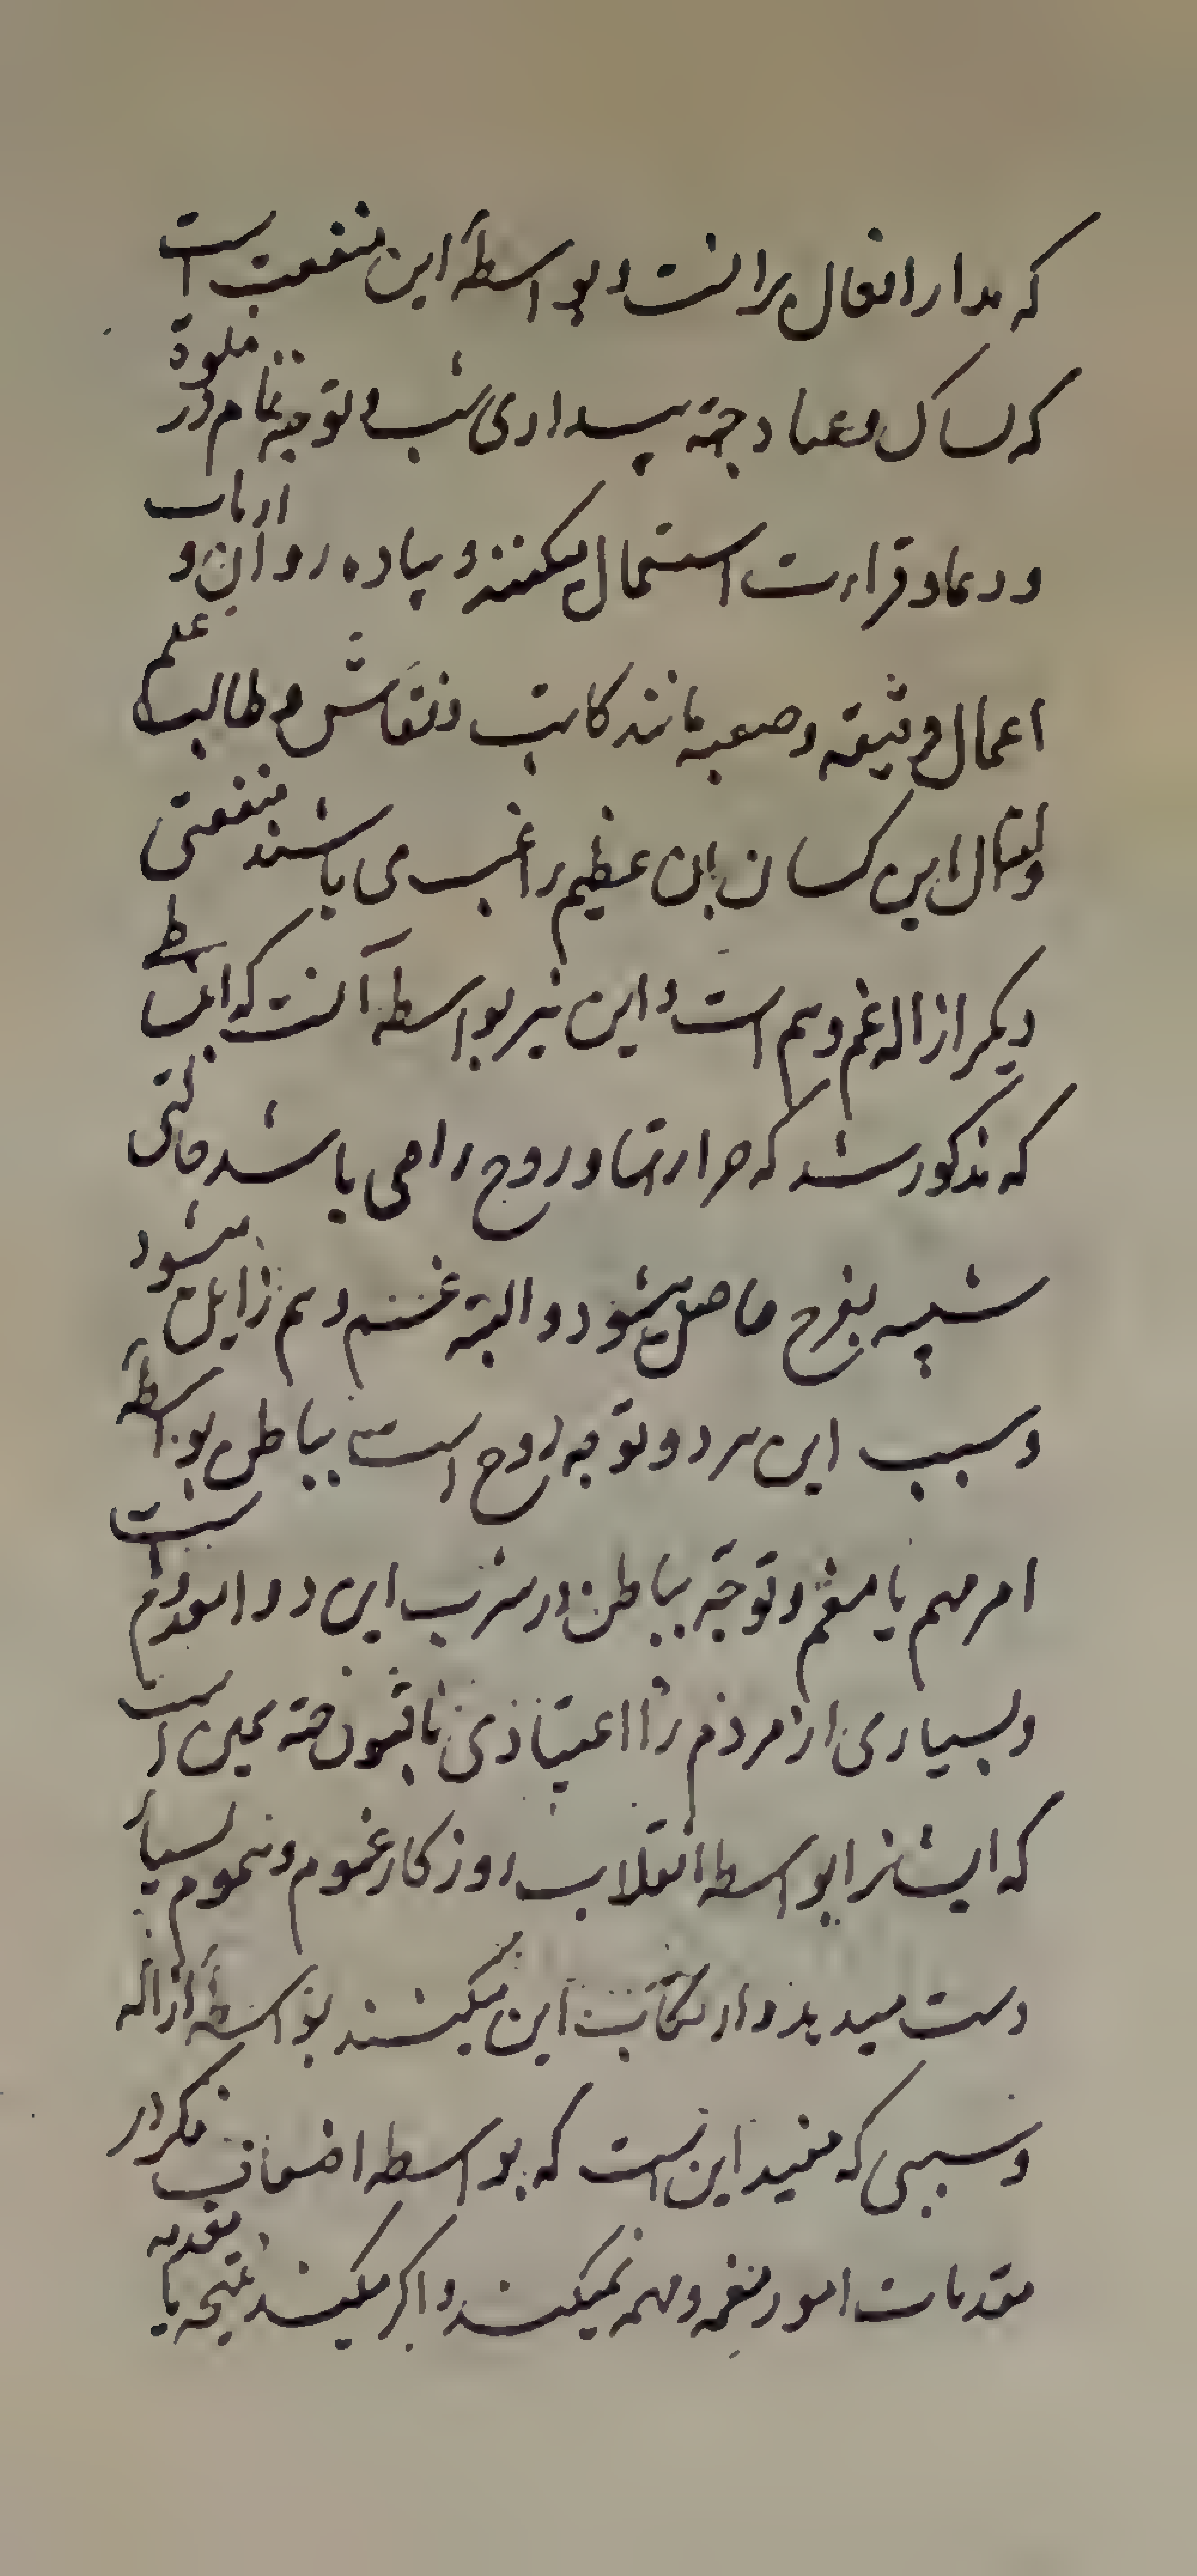 که مدار افعال برانست و بواسطهٔ این منفعت است
که نساک و عباد جهة بیداری شب و توجه تمام در صلوة
و دعا و قراءت استعمال میکنند و پیاده روان و ارباب
اعمال دقیقه و صعبه مانند کاتب و نقاش و طالب علم
و امثال این کسان بان عظیم راغب می باشند منفعتی
دیکر ازاله غم و هم است و این نیز بواسطه آنست که انبساطی
که مذکور شد که حرارتها و روح را می باشد حالتی
شبیه بفرح حاصل میشود و البته غم و هم زایل میشود
و سبب این هر دو توجه روح است بباطن بواسطهٔ
امر مهم یا مغم و توجه بباطن در شرب این دوا معدوم است
و بسیاری از مردم را اعتیاد بافیون جهة همین است
که ایشانرا بواسطه انقلاب روزکار غموم و هموم بسیار
دست میدهد و ارتکاب این میکنند بواسطهٔ ازاله
و سببی که مفید اینست که بواسطه اضعاف فکر در
مقدمات امور مغمه و مهمه نمیکنند و اکر میکنند نتیجه با مقدمه